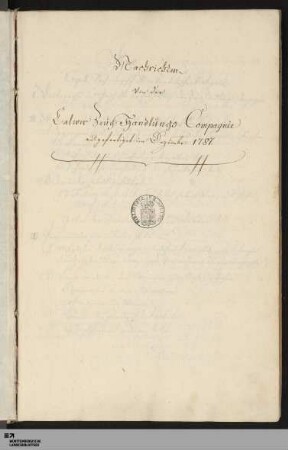 Nachrichten
von der
Calwer Zeug-Handlungs-Compagnie
ausgefertiget im Dezember 1787
WÜRTTEMBERGISCHE
LANDESBIBLIOTHEK